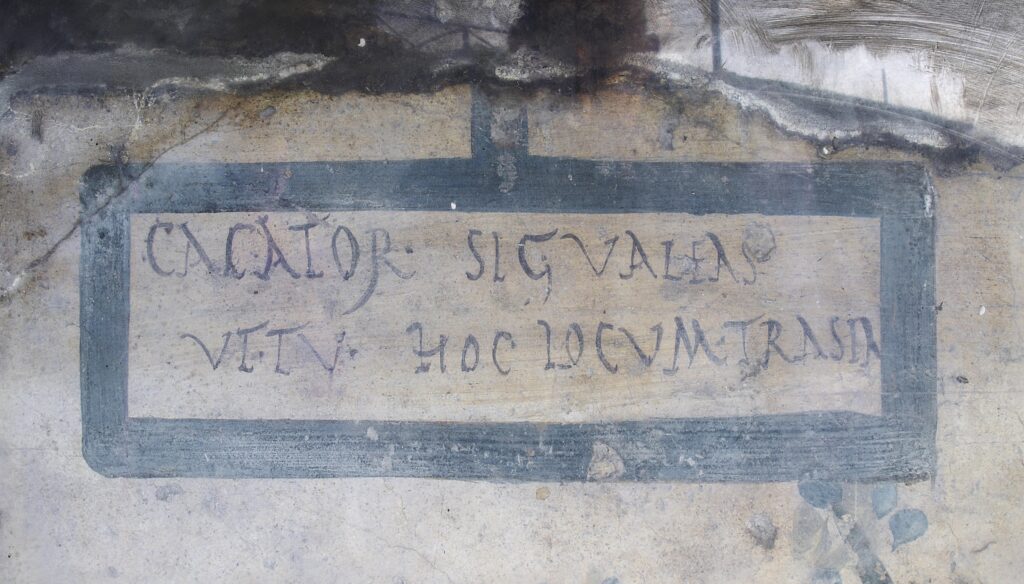 CACATOR SIG VALEAS
VT TV HOC LOCVM TRASIA